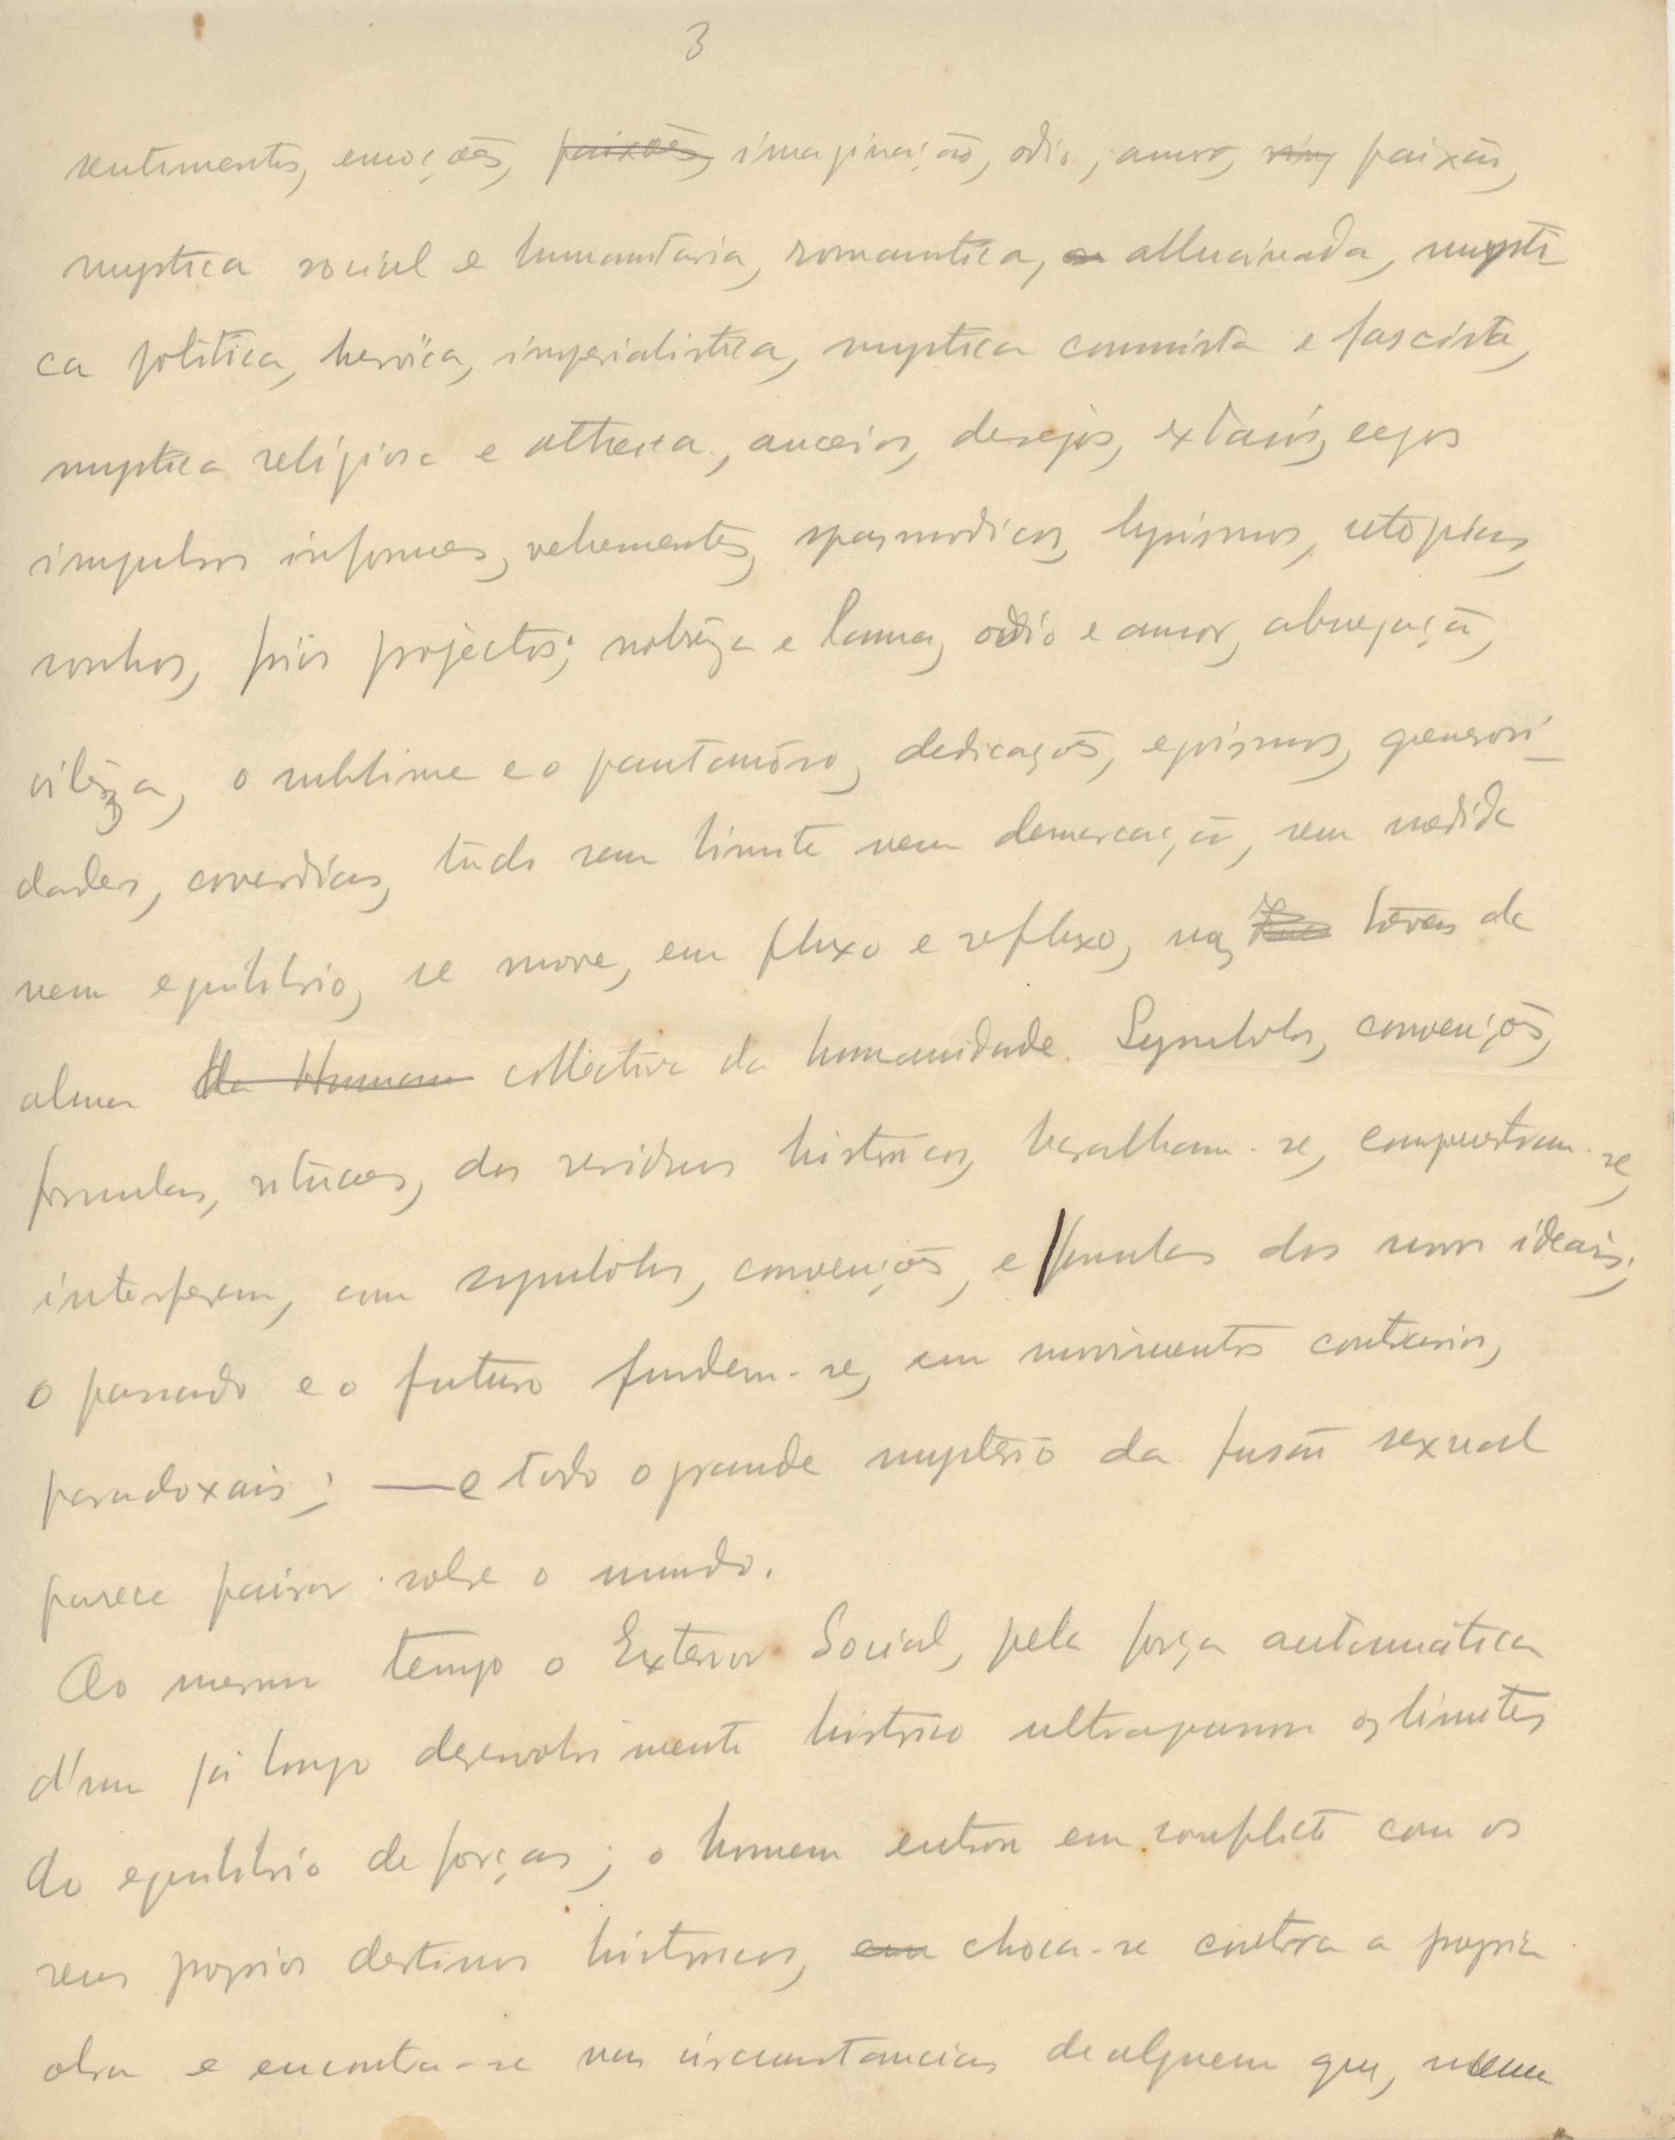 3
sentimentos, emoções, paixões, imaginação, odio, amor, paixão,
mystica social e humanitaria, romantica, e allucinada, mysti-
ca politica, heroica, imperialistica, mystica comunista e fascista,
mystica religiosa e atheista, anceios, desejos, extasis, cegos
impulsos informes, vehementes, spasmodicos, lyrismos, utopias,
sonhos, frios projectos; nobrêza e lama, odio e amor, abnegação,
vilêza, o sublime e o pantanôso, dedicações, egoismos, generosi-
dades, covardias, tudo sem limite nem demarcação, sem medida
nem equilibrio, se move, em fluxo e refluxo, nas da
alma da Humana collectiva da humanidade. Symbolos, convenções,
formulas, rituaes, dos residuos historicos, baralham-se,
interferem, com symbolos, convenções, e formulas dos novos ideais;
o passado e o futuro fundem-se, em movimentos contrarios,
paradoxais; — e todo o grande mysterio da fusão sexual
parece pairar sobre o mundo.
Ao mesmo tempo o Exterior Social, pela força automatica
d'um já longo desenvolvimento historico ultrapassou os limites
do equilibrio de forças; o homem entrou em conflicto com os
seus proprios destinos historicos, em choca-se contra a propria
obra e encontra-se nas circumstancias de alguem que, numa